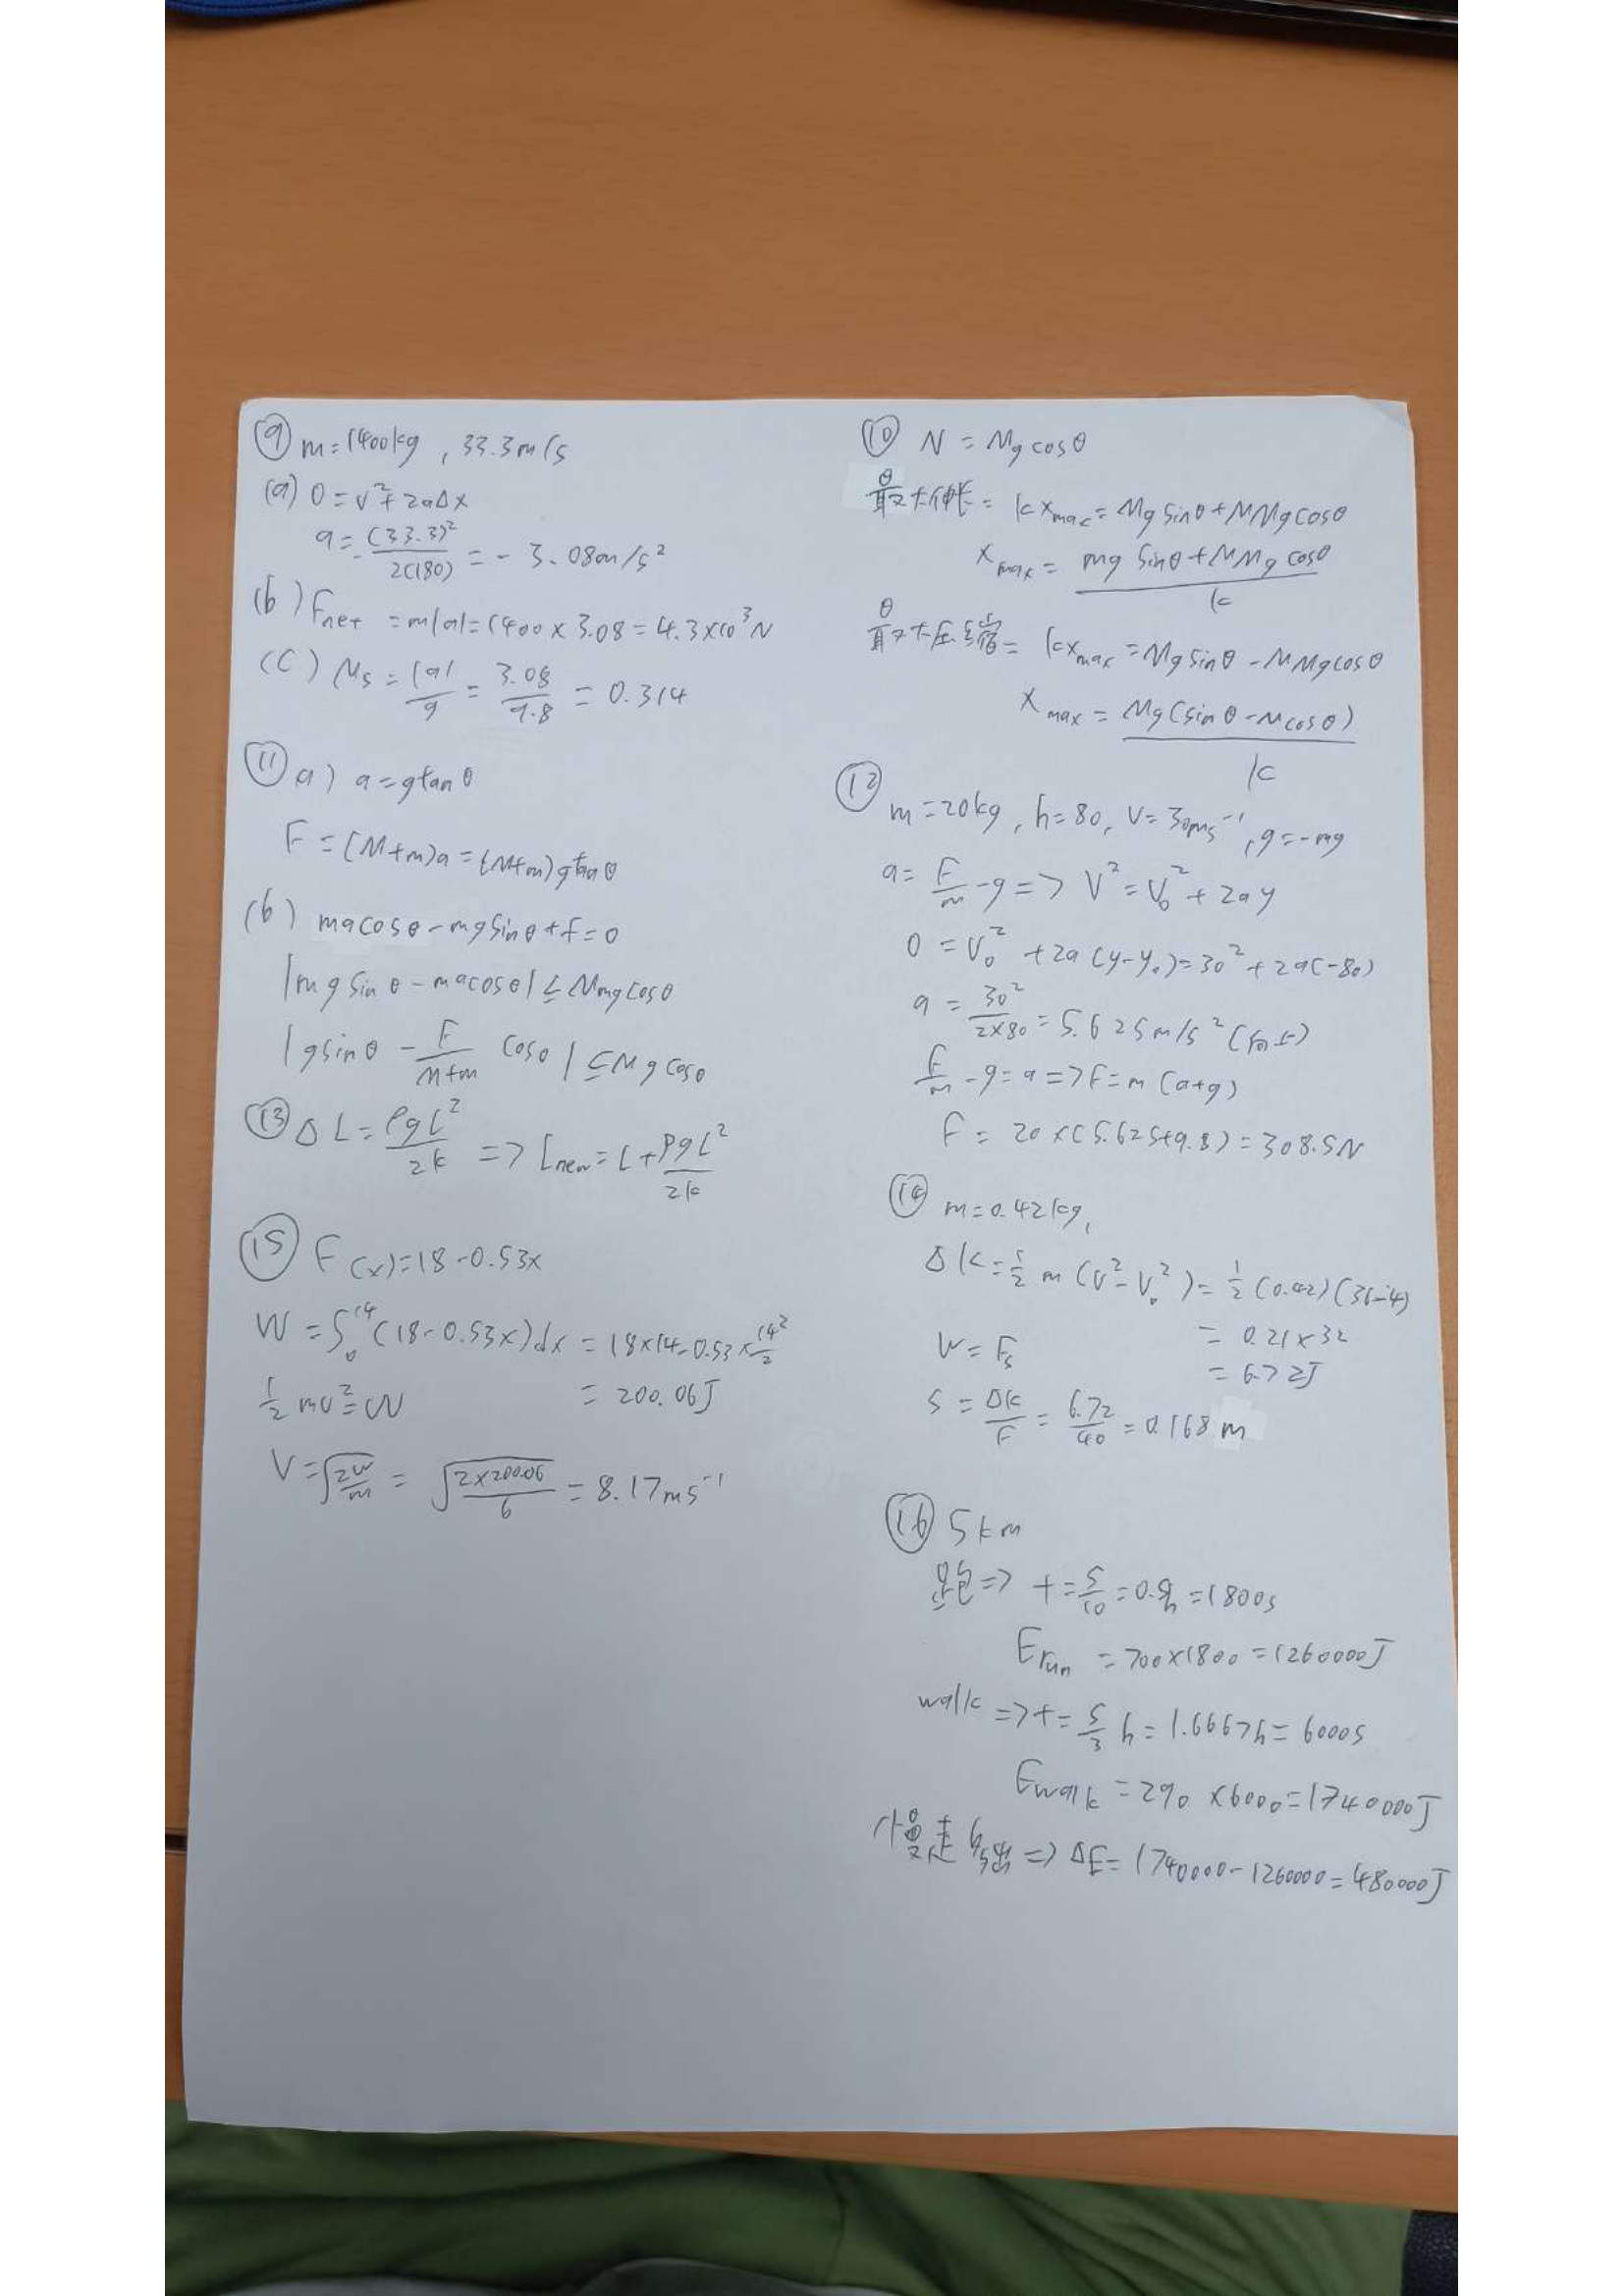 ⑨ m=1400kg , 33.3m/s
(a) 0=v²+2aΔx
a=-(33.3)²/2(180) = -3.08m/s²
(b) Fnet =m|a|=1400×3.08=4.3×10³N
(c) Ms = |a|/g = 3.08/9.8 = 0.314
⑪ a) a=gtanθ
F=(M+m)a=(M+m)gtanθ
(b) macosθ-mgsinθ+f=0
|mgsinθ-macosθ|≤Mmgcosθ
|gsinθ - F/M+m cosθ|≤Mgcosθ
⑬ ΔL=ρgL²/2k => Lnew=L+ρgL²/2k
⑮ F(x)=18-0.53x
W=∫₀¹⁴(18-0.53x)dx=18×14-0.53×14²/2
½mv²=W =200.06J
V=√2W/m = √2×200.06/6 = 8.17ms⁻¹
⑩ N=Mgcosθ
θ
最大伸長= kxmax=Mgsinθ+MMgcosθ
xmax= mgsinθ+MMgcosθ/k
θ
最大压缩= kxmax=Mgsinθ-MMgcosθ
xmax= Mg(sinθ-Mcosθ)/k
⑫ m=20kg, h=80, V=30ms⁻¹, g=-mg
a= F/m -g => V²=V₀²+2ay
0=V₀²+2a(y-y₀)=30²+2a(-80)
a= 30²/2×80 =5.625m/s² (向上)
F/m -g=a=>F=m(a+g)
F=20×(5.625+9.8)=308.5N
⑭ m=0.42kg,
ΔK=½m(V²-V₀²)=½(0.42)(36-4)
=0.21×32
W=Fs =6.72J
s= ΔK/F = 6.72/40 =0.168m
⑯ 5km
跑=> t=5/10=0.5h=1800s
Erun =700×1800=1260000J
walk =>t=5/3 h=1.6667h=6000s
Ewalk =290×6000=1740000J
慢走 => ΔE=1740000-1260000=480000J